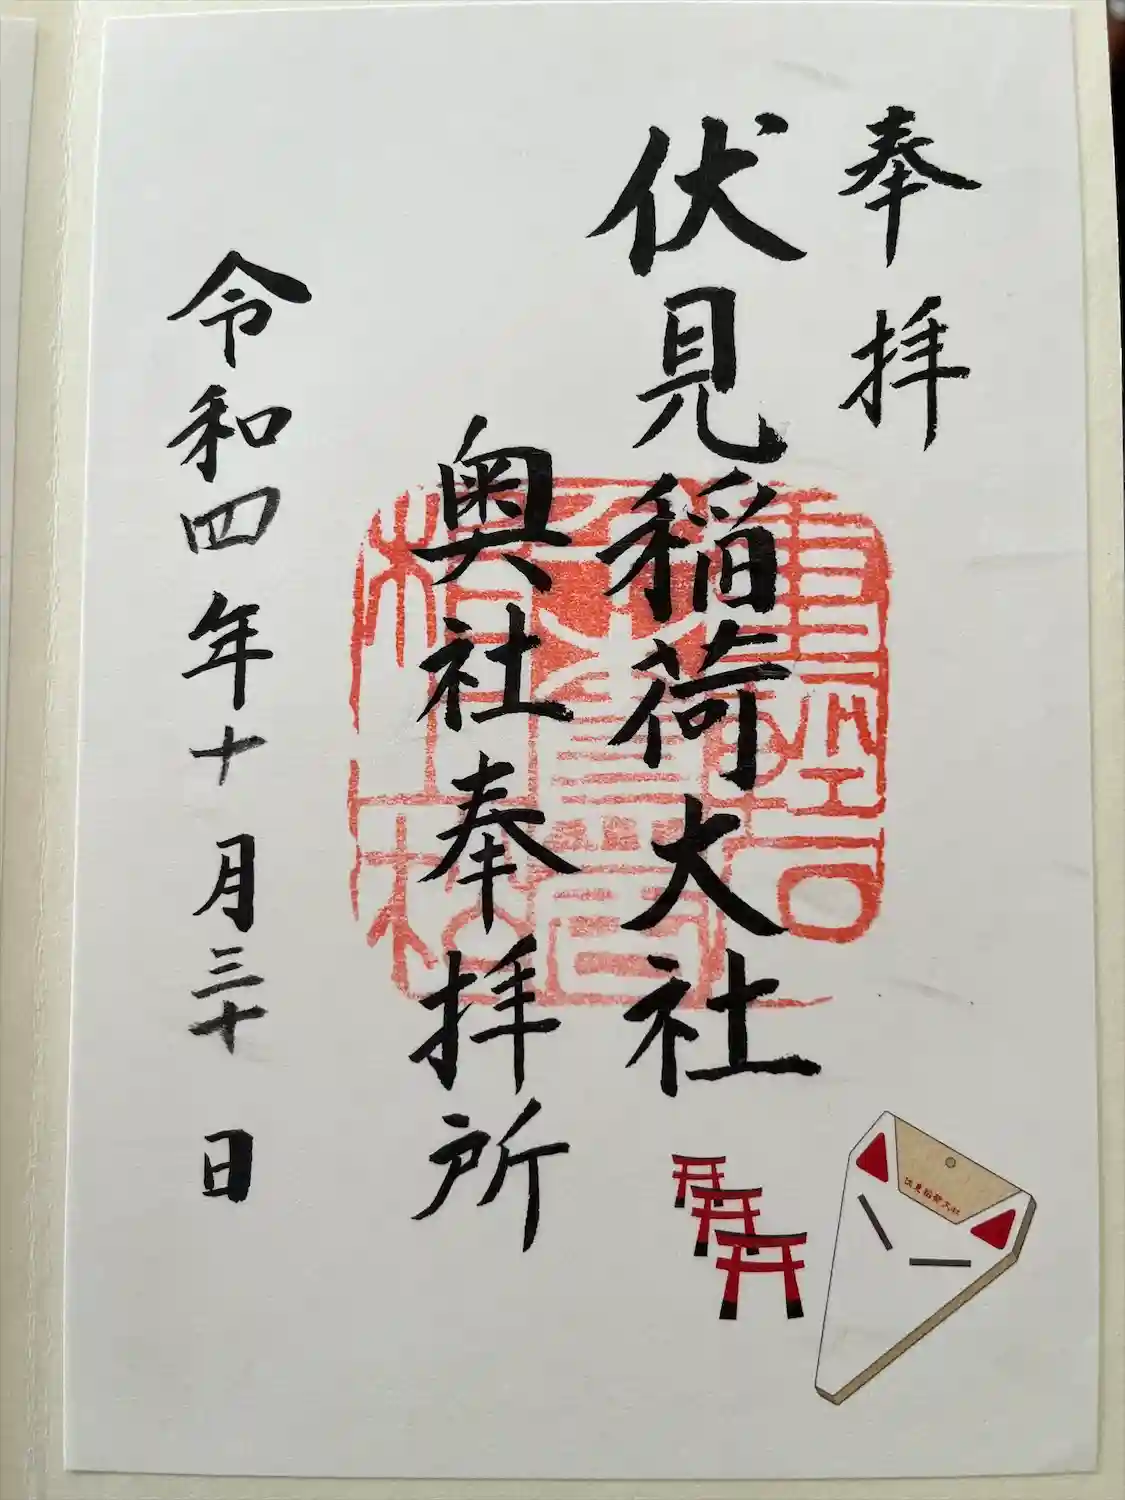 奉拝
伏見稲荷大社
奥社奉拝所
令和四年十月三十日
伏見稲荷大社